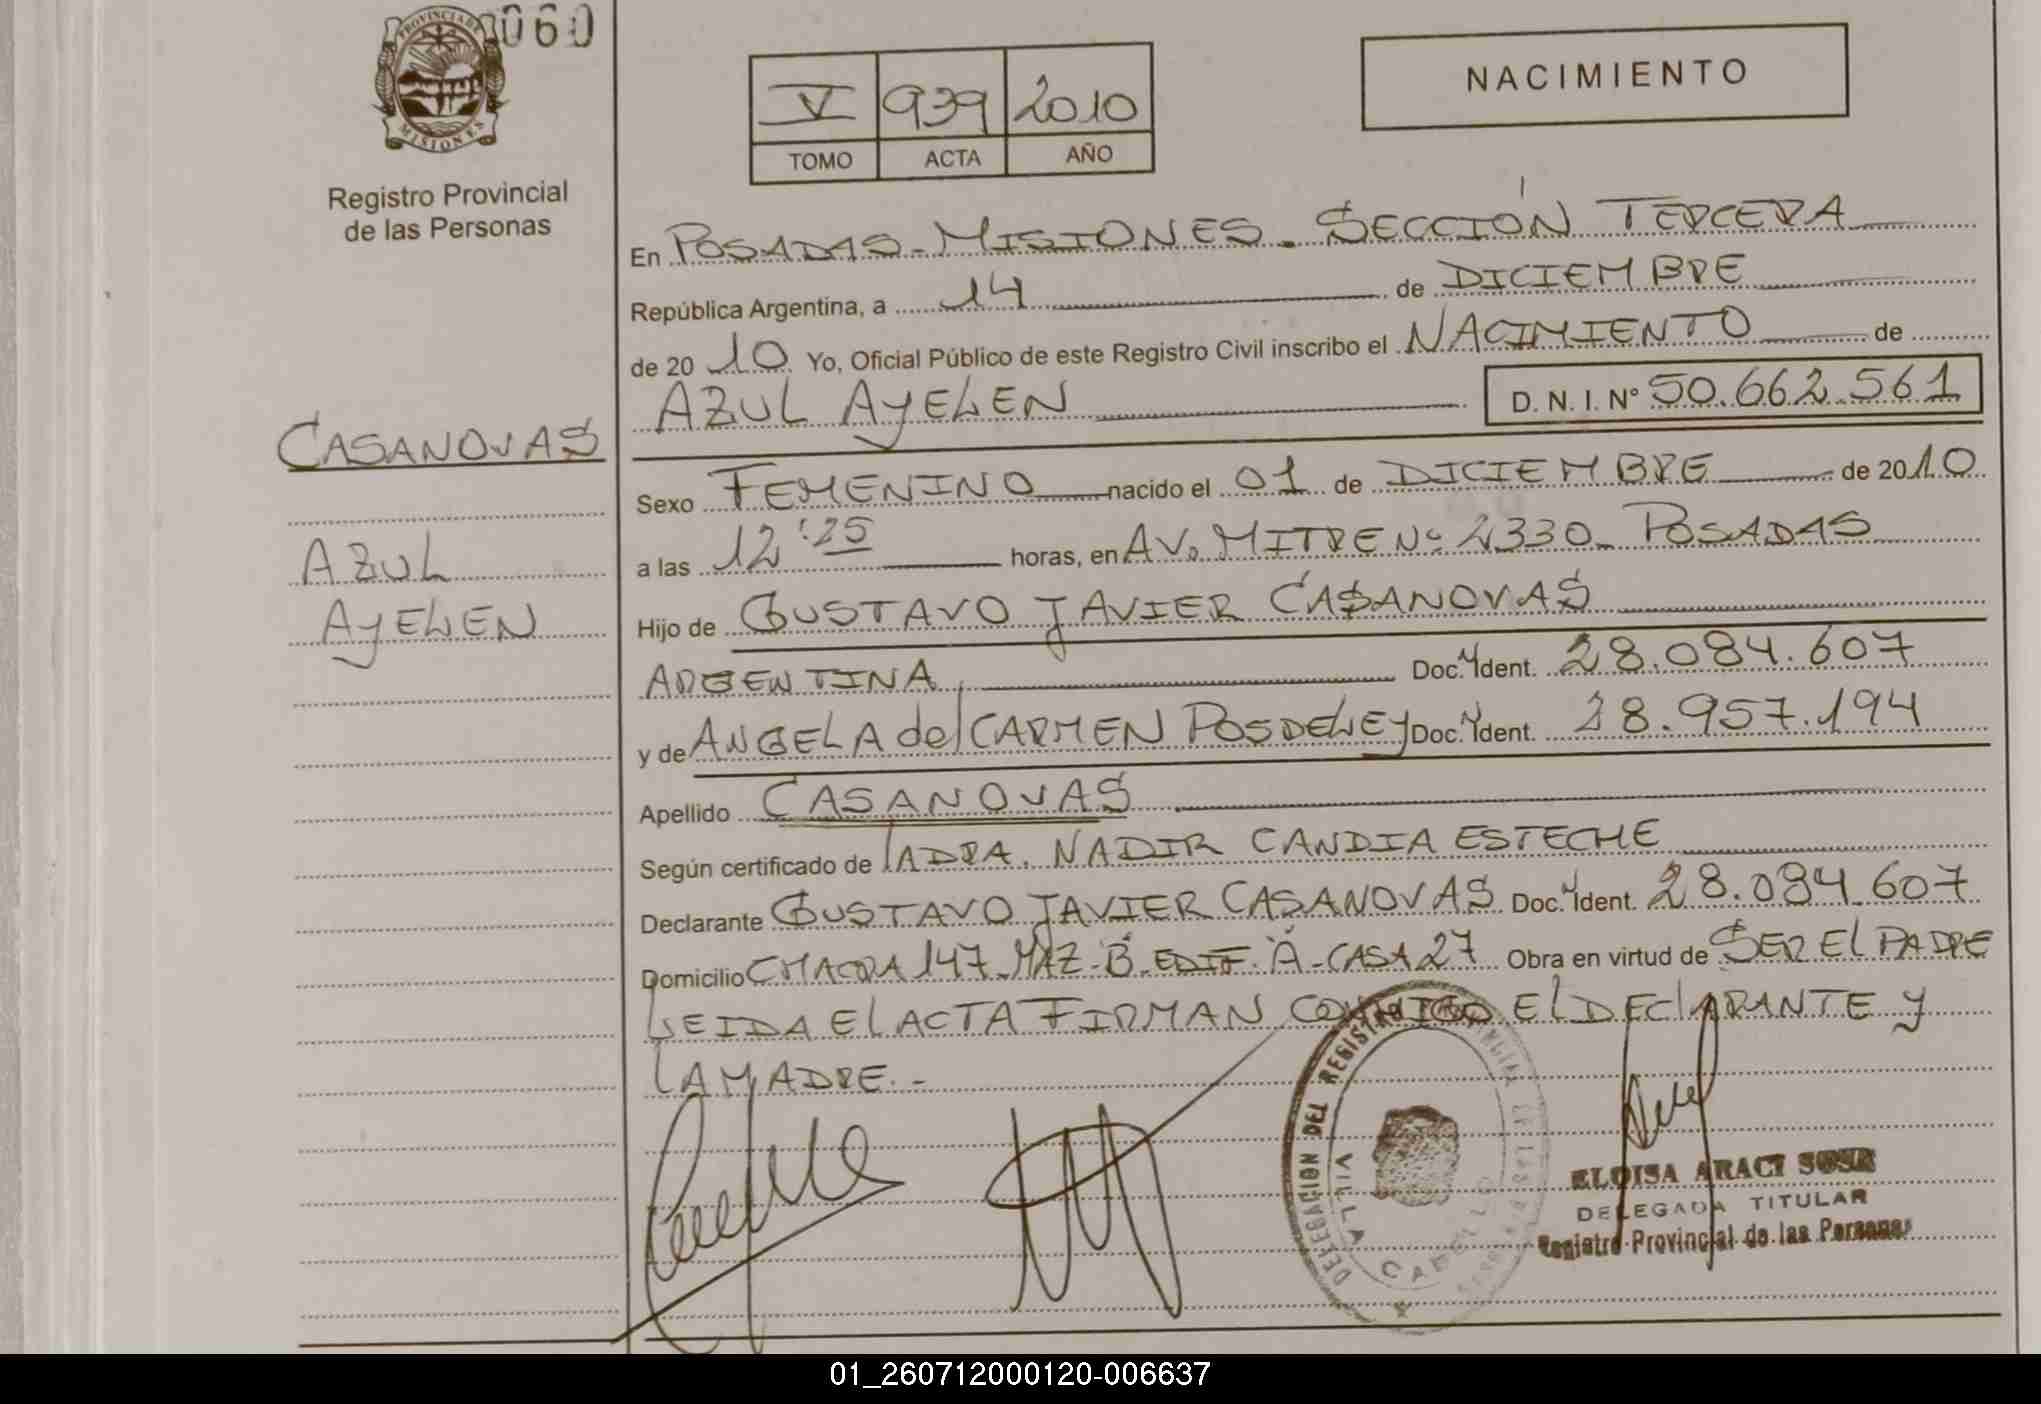 060
PROVINCIA DE
MISIONES
Registro Provincial
de las Personas
V 939 2010
TOMO ACTA AÑO
NACIMIENTO
En POSADAS - MISIONES - SECCIÓN TERCERA
República Argentina, a 14 de DICIEMBRE
de 20 10 Yo, Oficial Público de este Registro Civil inscribo el NACIMIENTO de
AZUL AYELEN D. N. I. N° 50.662.561
CASANOVAS
AZUL
AYELEN
Sexo FEMENINO nacido el 01 de DICIEMBRE de 2010
a las 12:25 horas, en AV. MITRE Nº 2330 - POSADAS
Hijo de GUSTAVO JAVIER CASANOVAS
ARGENTINA Doc. Ident. 28.084.607
y de ANGELA del CARMEN POSDELEY Doc. Ident. 28.957.194
Apellido CASANOVAS
Según certificado de LA DRA. NADIR CANDIA ESTECHE
Declarante GUSTAVO JAVIER CASANOVAS Doc. Ident. 28.084.607
Domicilio CHACRA 147 - MZ - B - EDIF. A - CASA 27 Obra en virtud de SER EL PADRE
LEIDA EL ACTA FIRMAN CONMIGO EL DECLARANTE Y
LA MADRE. -
DELEGACION DEL REGISTRO PROVINCIAL DE LAS PERSONAS
VILLA CABELLO
ELOISA ARACI SOSA
DELEGADA TITULAR
Registro Provincial de las Personas
01_260712000120-006637